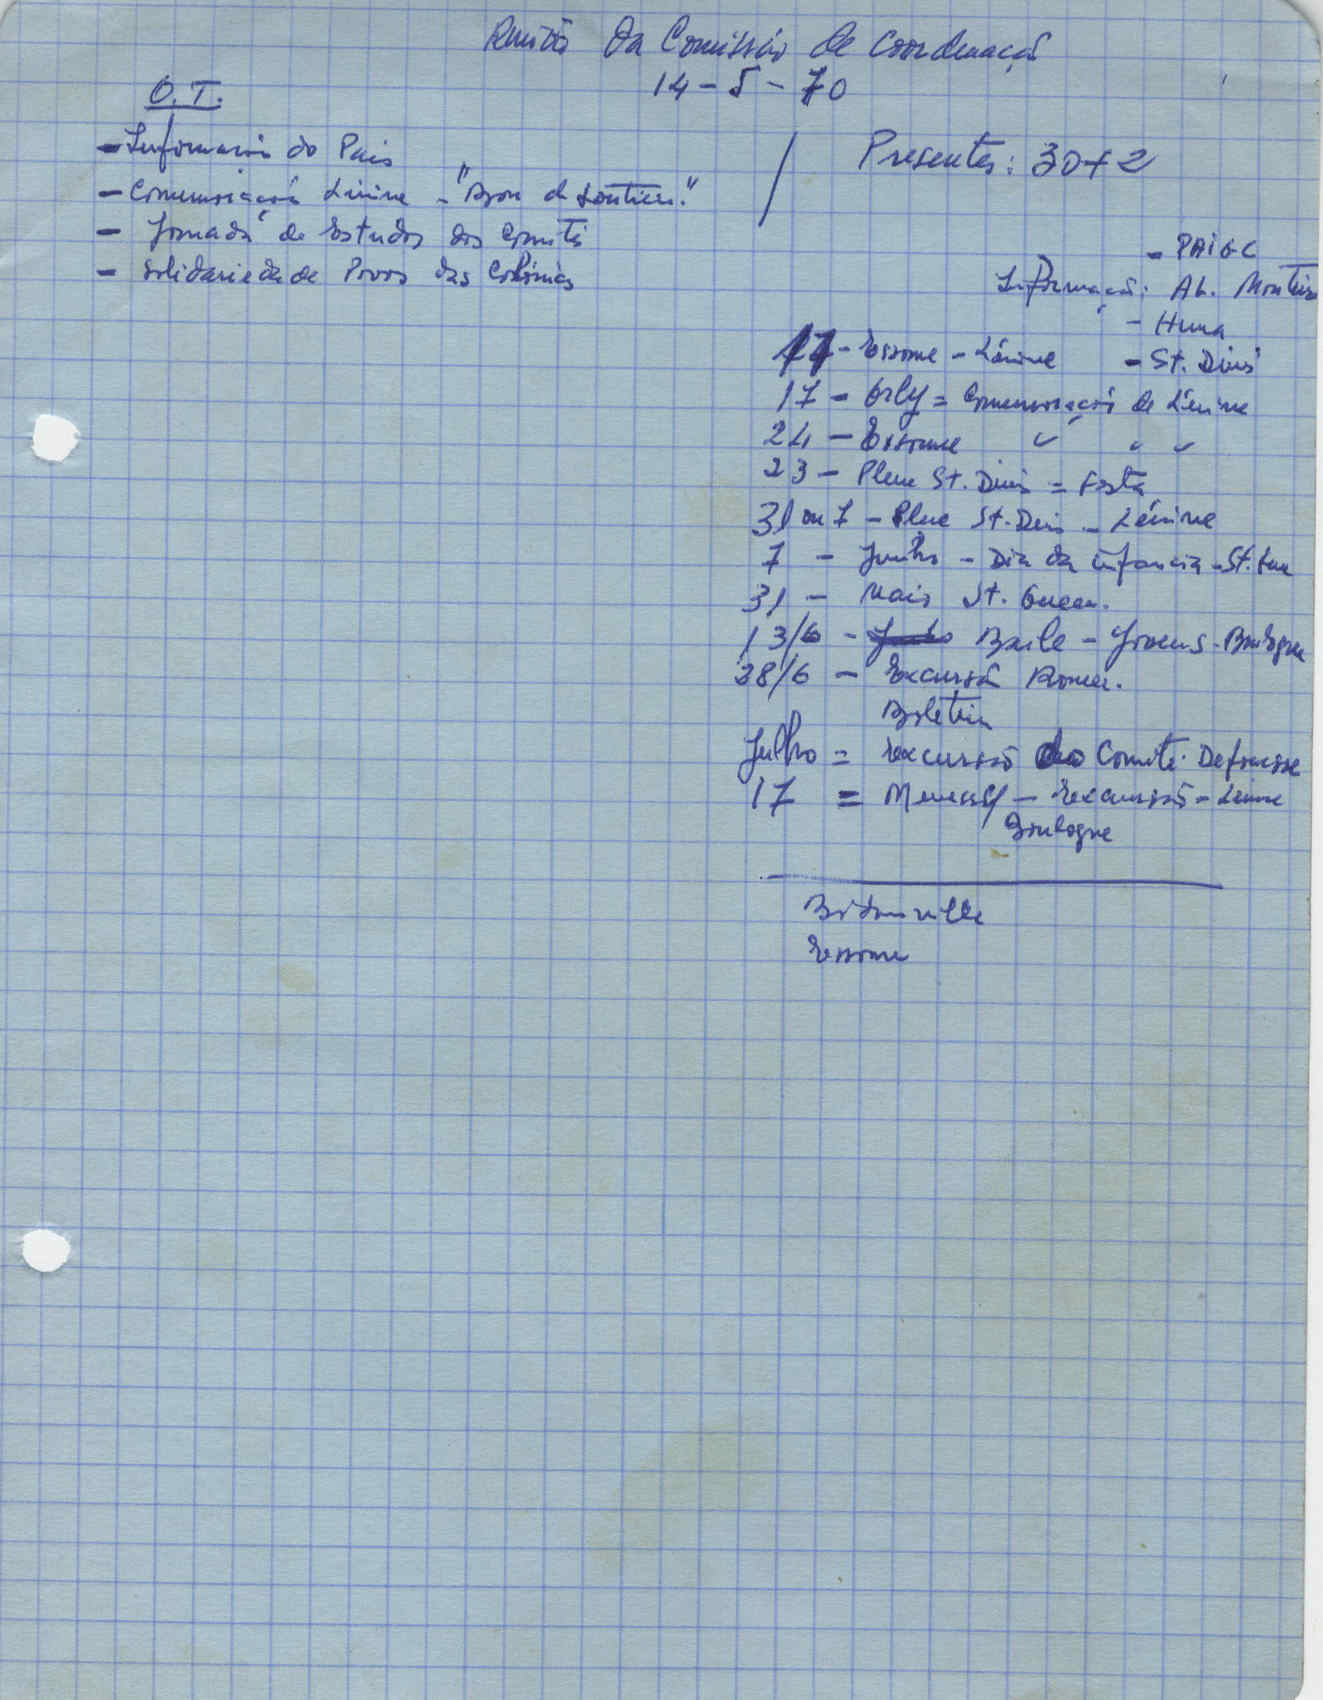 Reunião da Comissão de Coordenação
14-5-70
O.T.
- Informação do Pais
- Comemoração Lénine - "Bon de Soutien."
- Jornada de Estudos dos Comités
- Solidariedade Povos das Colónias
Presentes: 30+2
- PAIGC
Informação: Ab. Monteiro
- Huma
- St. Dinis
17 - Essone - Lénine
17 - Orly = Comemoração de Lénine
24 - Essonne " " "
23 - Plene St. Dinis = Festa
31 ou 7 - Plene St. Denis - Lénine
7 - Junho - Dia da infancia - St.
31 - Maio St. Ouen.
13/6 - Baile - Jovens - Boulogne
28/6 - Excursão
Boletim
Julho = excursão do Comité Defrasse
17 = Menecy - Excursão - Lénine
Boulogne
Bidonville
Essonne